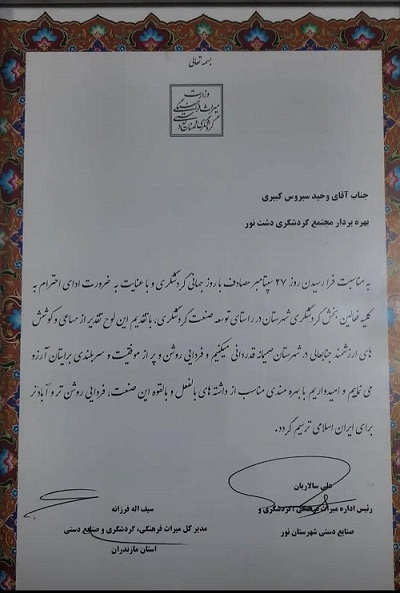 بسمه تعالی
وزارت
میراث فرهنگی
گردشگری و صنایع دستی
جناب آقای وحید سیروس کبیری
بهره بردار مجتمع گردشگری دشت نور
به مناسبت فرا رسیدن روز ۲۷ سپتامبر مصادف با روز جهانی گردشگری و با عنایت به ضرورت ادای احترام به
کلیه فعالین بخش گردشگری شهرستان در راستای توسعه صنعت گردشگری، با تقدیم این لوح تقدیر از مساعی و کوشش
های ارزشمند جنابعالی در شهرستان صمیمانه قدردانی میکنیم و فردایی روشن و پر از موفقیت و سربلندی برایتان آرزو
می نماییم و امیدواریم با بهره مندی مناسب از داشته های بالفعل و بالقوه این صنعت، فردایی روشن تر و آبادتر
برای ایران اسلامی ترسیم گردد.
علی سالاریان
رئیس اداره میراث فرهنگی، گردشگری و
صنایع دستی شهرستان نور
سیف اله فرزانه
مدیر کل میراث فرهنگی، گردشگری و صنایع دستی
استان مازندران